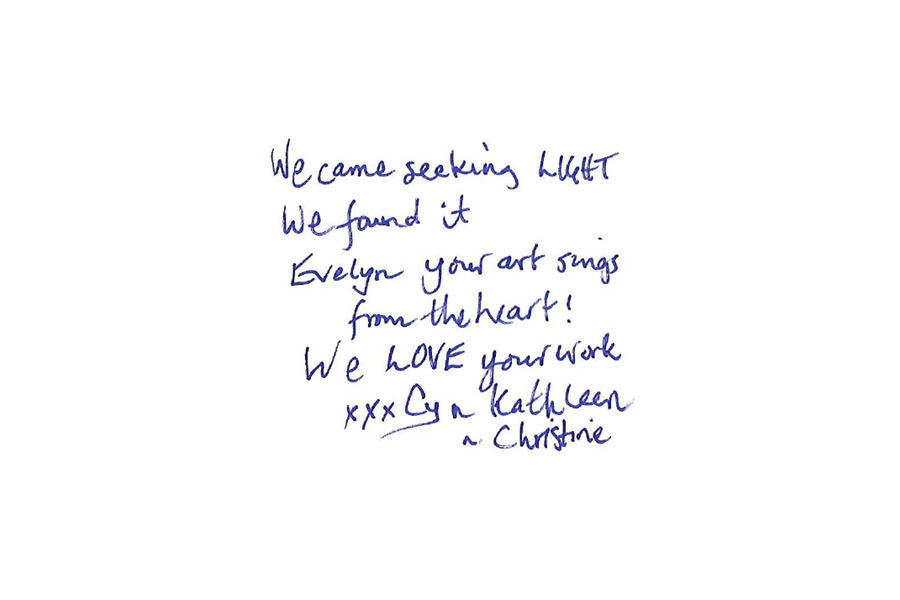 We came seeking LIGHT
We found it
Evelyn your art sings
from the heart!
We LOVE your work
xxx Cy n Kathleen
n Christine